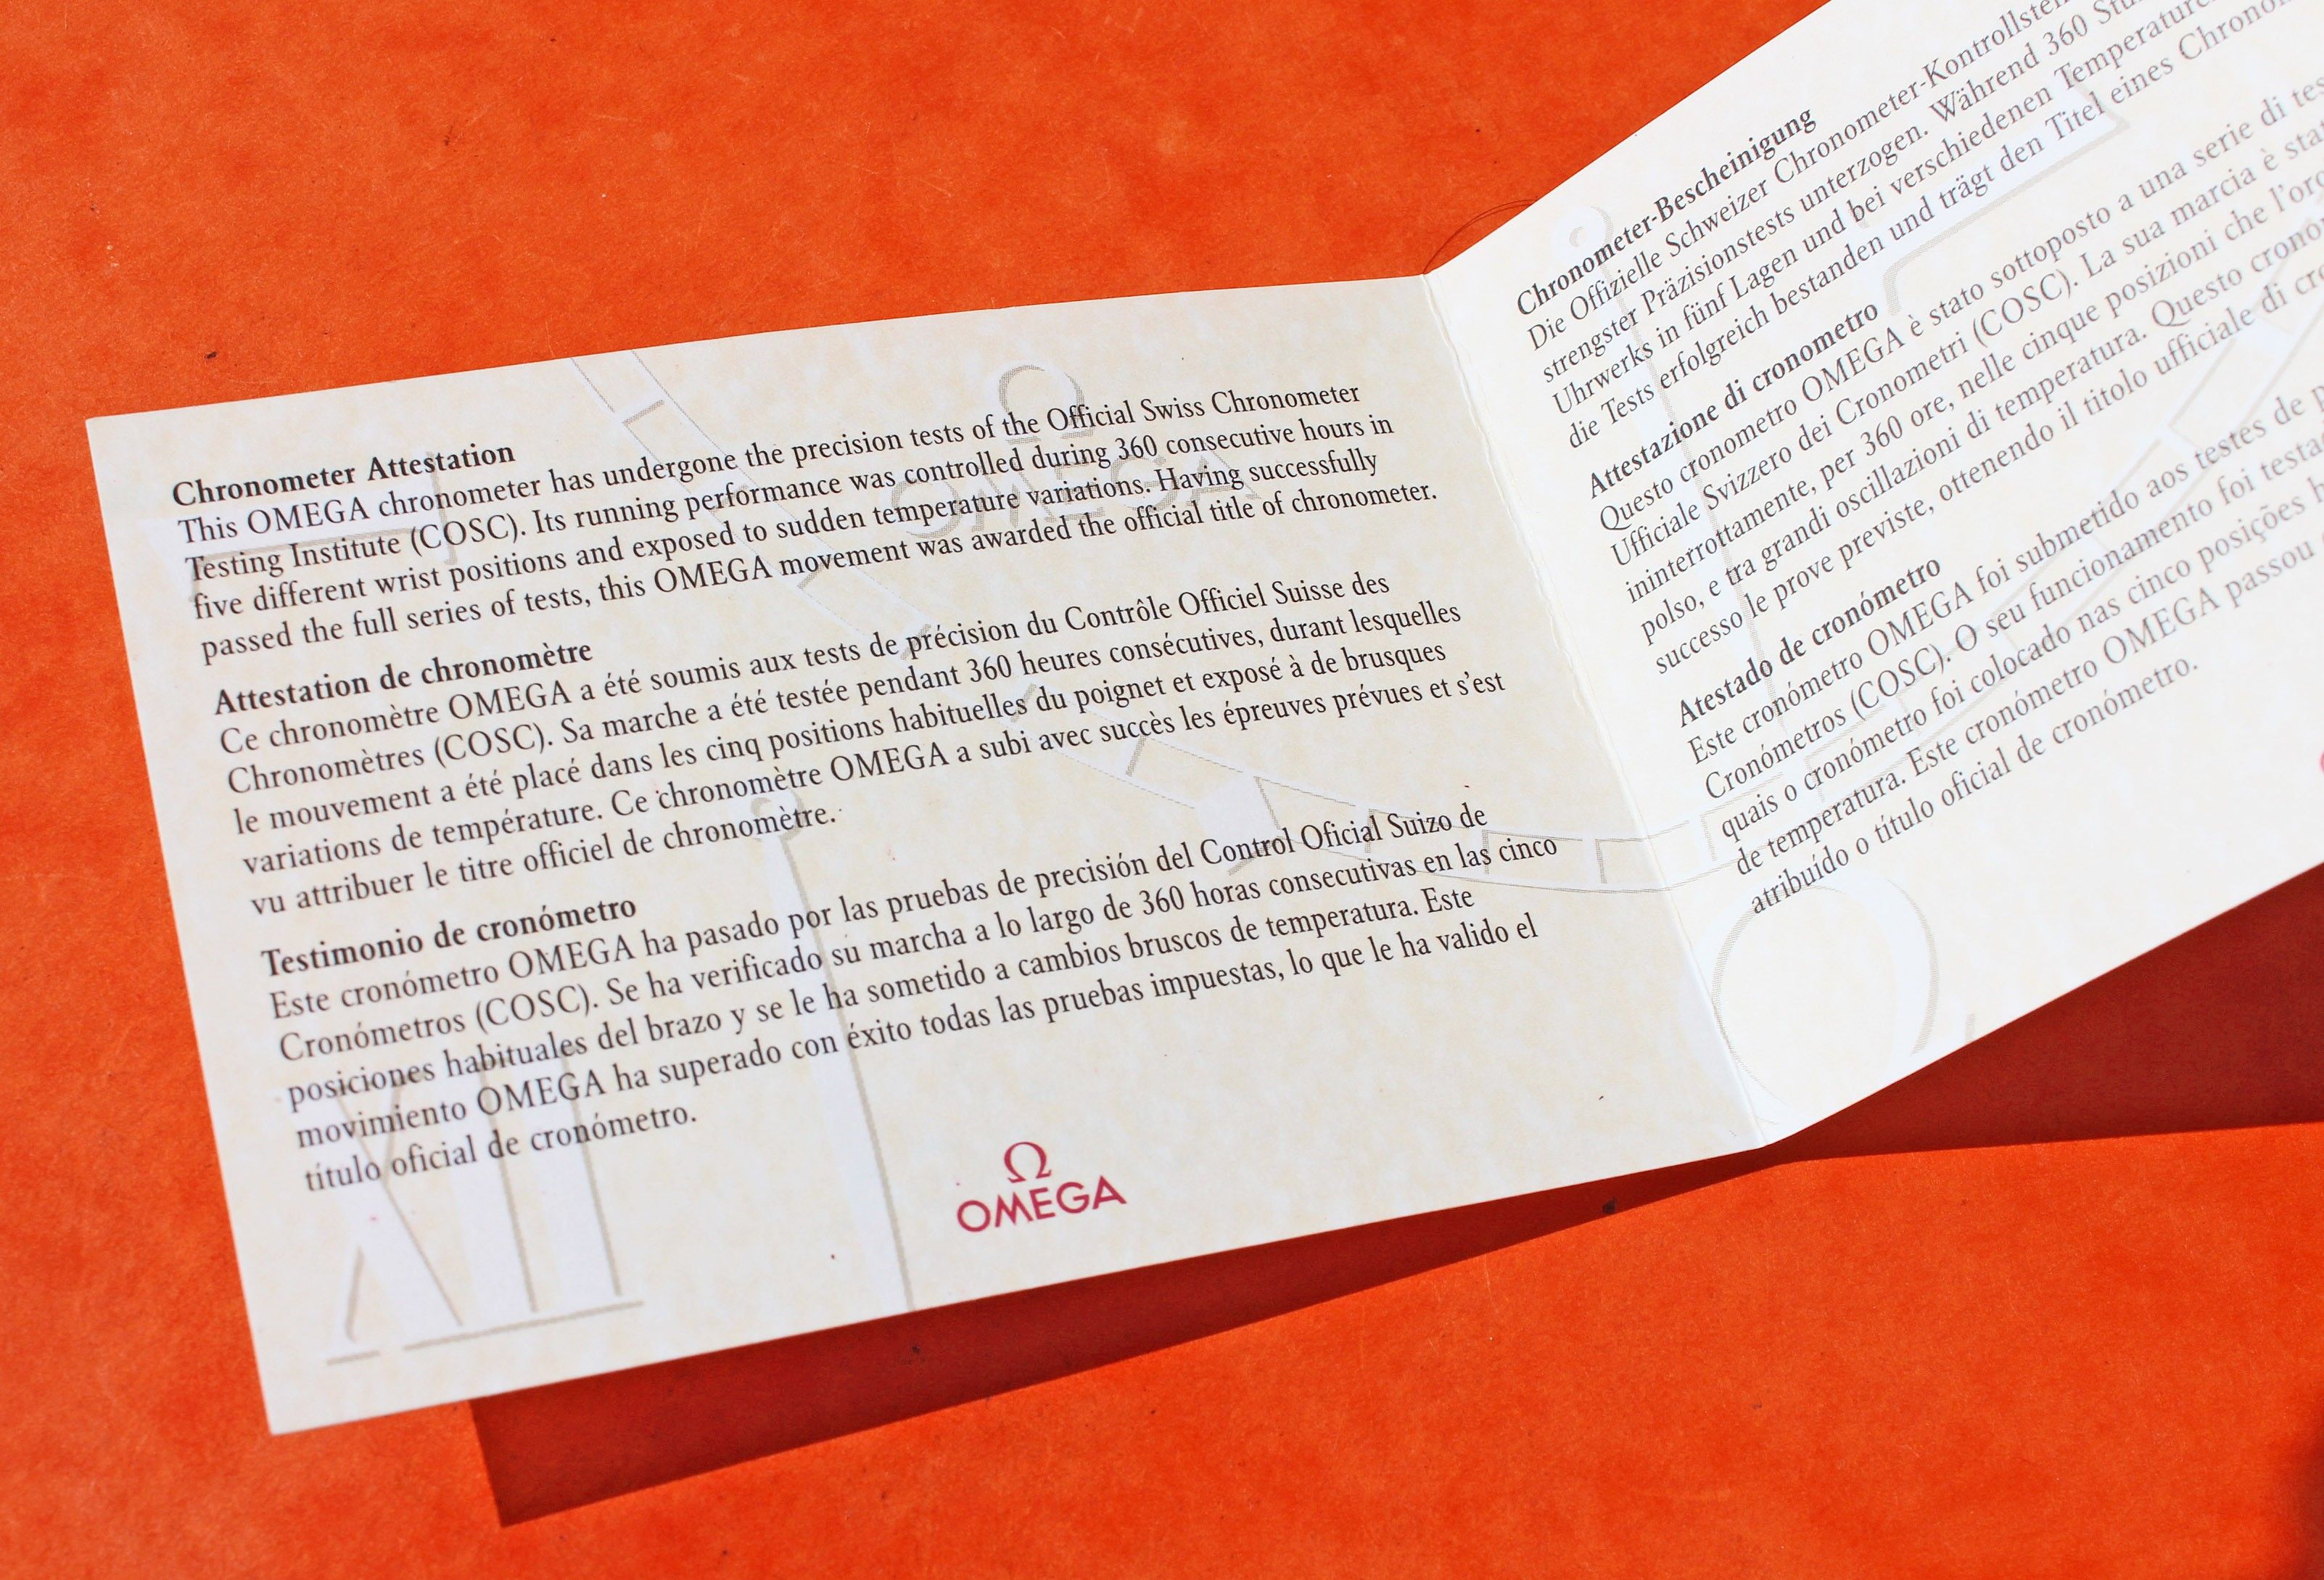 Chronometer Attestation
This OMEGA chronometer has undergone the precision tests of the Official Swiss Chronometer
Testing Institute (COSC). Its running performance was controlled during 360 consecutive hours in
five different wrist positions and exposed to sudden temperature variations. Having successfully
passed the full series of tests, this OMEGA movement was awarded the official title of chronometer.
Attestation de chronomètre
Ce chronomètre OMEGA a été soumis aux tests de précision du Contrôle Officiel Suisse des
Chronomètres (COSC). Sa marche a été testée pendant 360 heures consécutives, durant lesquelles
le mouvement a été placé dans les cinq positions habituelles du poignet et exposé à de brusques
variations de température. Ce chronomètre OMEGA a subi avec succès les épreuves prévues et s'est
vu attribuer le titre officiel de chronomètre.
Testimonio de cronómetro
Este cronómetro OMEGA ha pasado por las pruebas de precisión del Control Oficial Suizo de
Cronómetros (COSC). Se ha verificado su marcha a lo largo de 360 horas consecutivas en las cinco
posiciones habituales del brazo y se le ha sometido a cambios bruscos de temperatura. Este
movimiento OMEGA ha superado con éxito todas las pruebas impuestas, lo que le ha valido el
título oficial de cronómetro.
Ω
OMEGA
Chronometer-Bescheinigung
Die Offizielle Schweizer Chronometer-Kontrollstel
strengster Präzisionstests unterzogen. Während 360 Stu
Uhrwerks in fünf Lagen und bei verschiedenen Temperature
die Tests erfolgreich bestanden und trägt den Titel eines Chrono
Attestazione di cronometro
Questo cronometro OMEGA è stato sottoposto a una serie di tes
Ufficiale Svizzero dei Cronometri (COSC). La sua marcia è sta
ininterrottamente, per 360 ore, nelle cinque posizioni che l'oro
polso, e tra grandi oscillazioni di temperatura. Questo cronom
successo le prove previste, ottenendo il titolo ufficiale di cro
Atestado de cronómetro
Este cronómetro OMEGA foi submetido aos testes de p
Cronómetros (COSC). O seu funcionamento foi testa
quais o cronómetro foi colocado nas cinco posições h
de temperatura. Este cronómetro OMEGA passou
atribuído o título oficial de cronómetro.